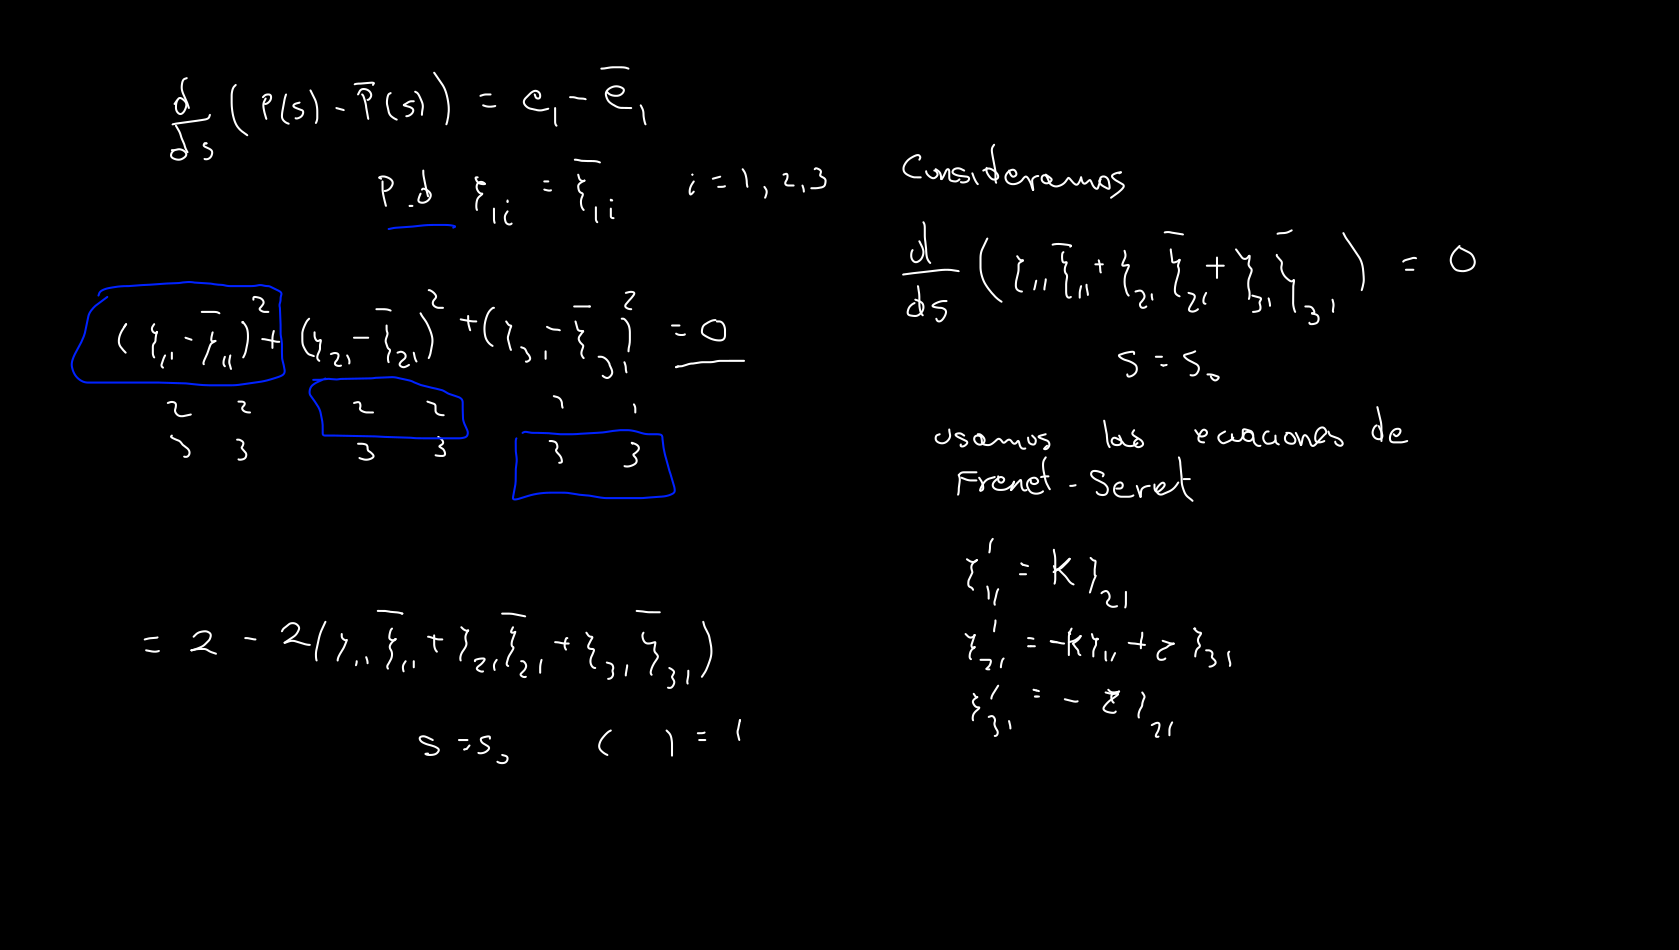 d/ds (P(s) - P̅(s)) = e₁ - e̅₁
P.d ξ₁ᵢ = ξ̅₁ᵢ i = 1, 2, 3
(ξ₁₁ - ξ̅₁₁)² + (ξ₂₁ - ξ̅₂₁)² + (ξ₃₁ - ξ̅₃₁)² = 0
2 2 2 2 2 2
3 3 3 3 3 3
= 2 - 2(ξ₁₁ ξ̅₁₁ + ξ₂₁ ξ̅₂₁ + ξ₃₁ ξ̅₃₁)
s = s₀ ( ) = 1
Consideramos
d/ds (ξ₁₁ ξ̅₁₁ + ξ₂₁ ξ̅₂₁ + ξ₃₁ ξ̅₃₁) = 0
s = s₀
usamos las ecuaciones de
Frenet - Seret
ξ₁₁' = K ξ₂₁
ξ₂₁' = -K ξ₁₁ + τ ξ₃₁
ξ₃₁' = - τ ξ₂₁